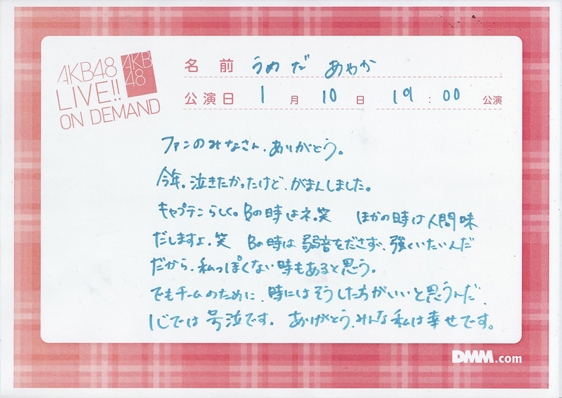 AKB48
LIVE!!
ON DEMAND
AKB
48
名前 うめだ あやか
公演日 1月 10日 19:00 公演
ファンのみなさん、ありがとう。
今年。泣きたかったけど、がまんしました。
キャプテンらしく。Bの時はネ。笑 ほかの時は人間味
だしますよ。笑 Bの時は弱音をださず、強くいたいんだ
だから、私っぽくない時もあると思う。
でもチームのために、時にはそうした方がいいと思うんだ、
心では号泣です。ありがとう、みんな私は幸せです。
DMM.com